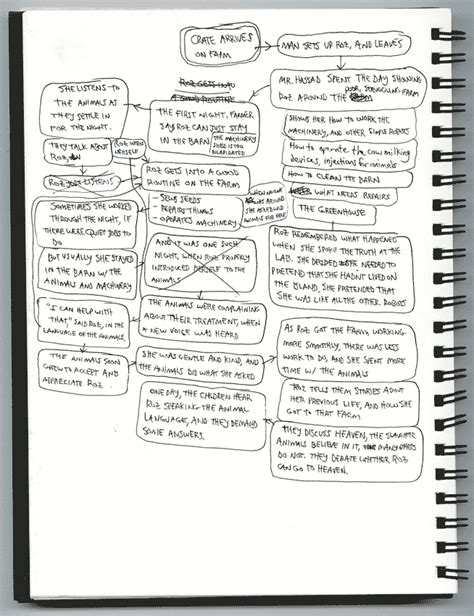 CRATE ARRIVES
ON FARM
MAN SETS UP ROZ, AND LEAVES
MR. HASSAD SPENT THE DAY SHOWING
ROZ AROUND THE
POOR, STRUGGLING FARM
SHOWS HER HOW TO WORK THE
MACHINERY, AND OTHER SIMPLE ROBOTS
HOW TO OPERATE THE COW MILKING
DEVICES, INJECTIONS FOR ANIMALS
HOW TO CLEAN THE BARN
WHAT NEEDS REPAIRS
THE GREENHOUSE
ROZ GETS INTO
A GOOD ROUTINE
THE FIRST NIGHT, FARMER
SAYS ROZ CAN JUST STAY
IN THE BARN
THE MACHINERY
SHED IS TOO
DILAPIDATED
SHE LISTENS TO
THE ANIMALS AS
THEY SETTLE IN
FOR THE NIGHT.
THEY TALK ABOUT
ROZ
ROZ
HERSELF
ROZ JUST LISTENS
ROZ GETS INTO A GOOD
ROUTINE ON THE FARM
- SEWS SEEDS
- REPAIRS THINGS
- OPERATES MACHINERY
WHEN NO ONE
WAS AROUND
SHE ASKED
ANIMALS FOR HELP
SOMETIMES SHE WORKED
THROUGH THE NIGHT, IF
THERE WERE QUIET JOBS TO
DO
BUT USUALLY SHE STAYED
IN THE BARN W/ THE
ANIMALS AND MACHINERY
AND IT WAS ONE SUCH
NIGHT, WHEN ROZ PROPERLY
INTRODUCED HERSELF TO THE
ANIMALS
THE ANIMALS WERE COMPLAINING
ABOUT THEIR TREATMENT, WHEN
A NEW VOICE WAS HEARD
"I CAN HELP WITH
THAT," SAID ROZ, IN THE
LANGUAGE OF THE ANIMALS.
THE ANIMALS SOON
GREW TO ACCEPT AND
APPRECIATE ROZ
SHE WAS GENTLE AND KIND, AND
THE ANIMALS DID WHAT SHE ASKED
ROZ REMEMBERED WHAT HAPPENED
WHEN SHE SPOKE THE TRUTH AT THE
LAB. SHE DECIDED SHE NEEDED TO
PRETEND THAT SHE HADN'T LIVED ON
THE ISLAND, SHE PRETENDED THAT
SHE WAS LIKE ALL THE OTHER ROBOTS
AS ROZ GOT THE FARM WORKING
MORE SMOOTHLY, THERE WAS LESS
WORK TO DO, AND SHE SPENT MORE
TIME W/ THE ANIMALS
ROZ TELLS THEM STORIES ABOUT
HER PREVIOUS LIFE, AND HOW SHE
GOT TO THAT FARM
THEY DISCUSS HEAVEN, THE SLAUGHTER
ANIMALS BELIEVE IN IT, MANY OTHERS
DO NOT. THEY DEBATE WHETHER ROZ
CAN GO TO HEAVEN.
ONE DAY, THE CHILDREN HEAR
ROZ SPEAKING THE ANIMAL
LANGUAGE, AND THEY DEMAND
SOME ANSWERS.